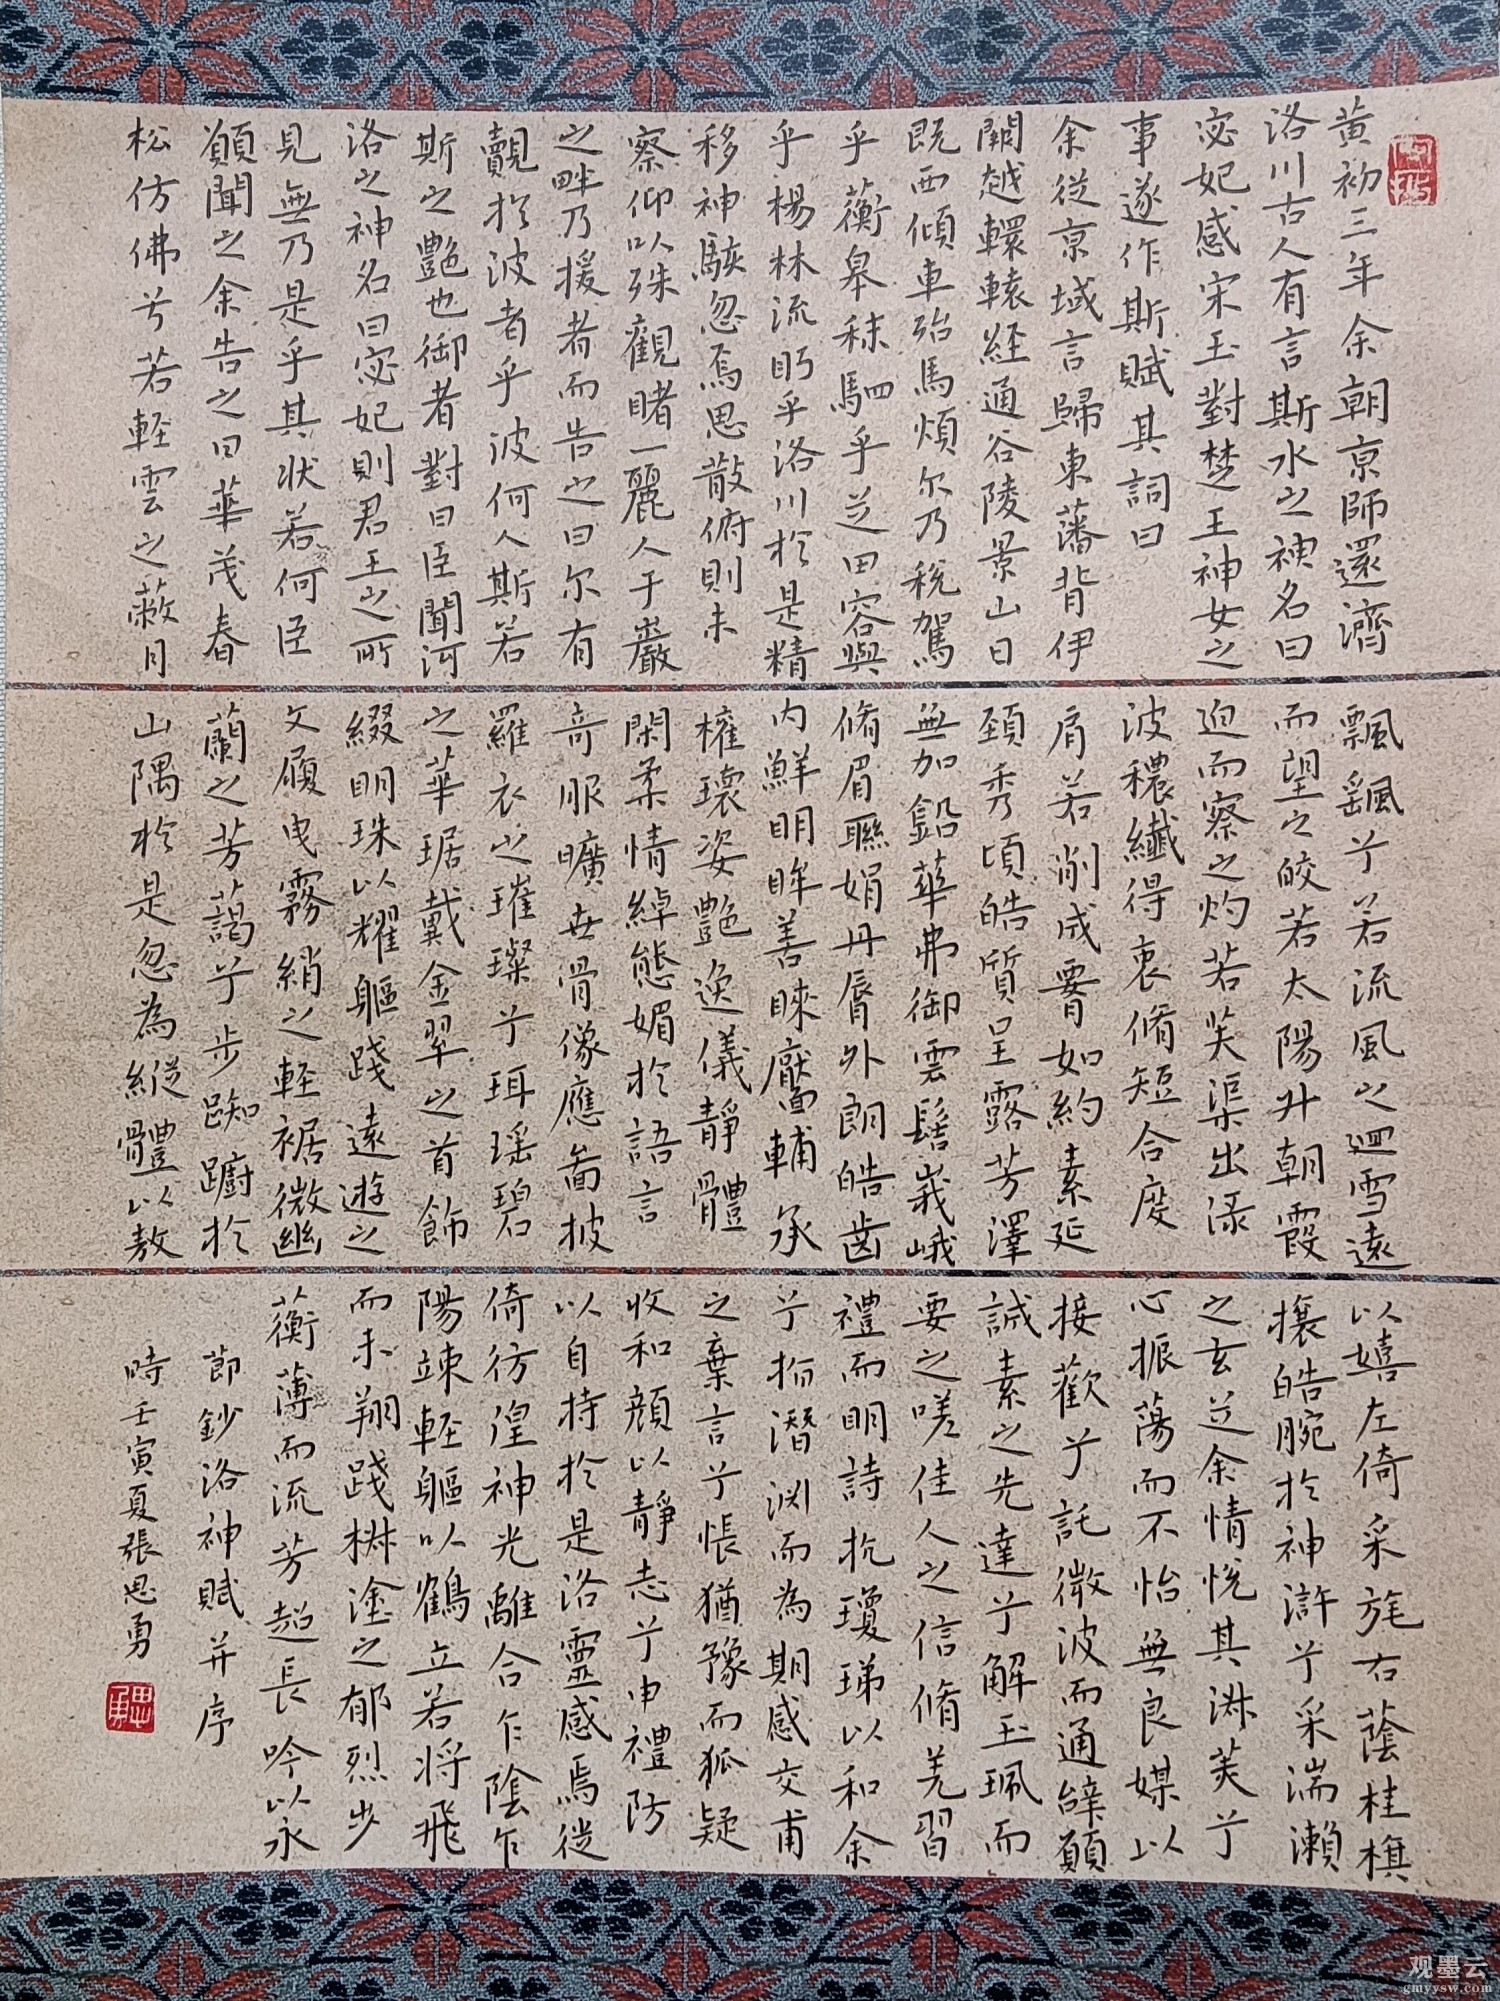 黄初三年余朝京師還濟
洛川古人有言斯水之神名曰
宓妃感宋玉對楚王神女之
事遂作斯賦其詞曰
余從京域言歸東藩背伊
闕越轘轅經通谷陵景山日
既西傾車殆馬煩尔乃税駕
乎蘅皋秣駟乎芝田容與
乎楊林流眄乎洛川於是精
移神駭忽焉思散俯則未
察仰以殊觀睹一麗人于巖
之畔乃援者而告之曰尔有
覿於波者乎波何人斯若
斯之艷也御者對曰臣聞河
洛之神名曰宓妃則君王之所
見無乃是乎其狀若何臣
願聞之余告之曰華茂春
松仿佛兮若輕雲之蔽月
飄颻兮若流風之迴雪遠
而望之皎若太陽升朝霞
迫而察之灼若芙渠出淥
波穠纖得衷脩短合度
肩若削成要如約素延
頚秀頃皓質呈露芳澤
無加鉛華弗御雲髻峩峨
脩眉聯娟丹脣外朗皓齒
内鮮明眸善睞靨輔承
權瓌姿艷逸儀靜體
閑柔情綽態媚於語言
奇服曠世骨像應圖披
羅衣之璀璨兮珥瑶碧
之華琚戴金翠之首飾
綴明珠以耀軀踐遠遊之
文履曳霧綃之輕裾微幽
蘭之芳藹兮步踟躕於
山隅於是忽為縱體以敖
以嬉左倚采旄右蔭桂旗
攘皓腕於神滸兮采湍瀬
之玄芝余情悦其淋美兮
心振蕩而不怡無良媒以
接歡兮託微波而通辭願
誠素之先達兮解玉珮而
要之嗟佳人之信脩羌習
禮而明詩抗瓊珶以和余
兮指潛渊而為期感交甫
之棄言兮悵猶豫而狐疑
收和顔以靜志兮申禮防
以自持於是洛靈感焉徙
倚彷徨神光離合乍陰乍
陽竦輕軀以鶴立若将飛
而未翔踐椒塗之郁烈步
蘅薄而流芳超長吟以永
節鈔洛神賦并序
時壬寅夏張思勇
思勇
观墨云
gmyysw.com